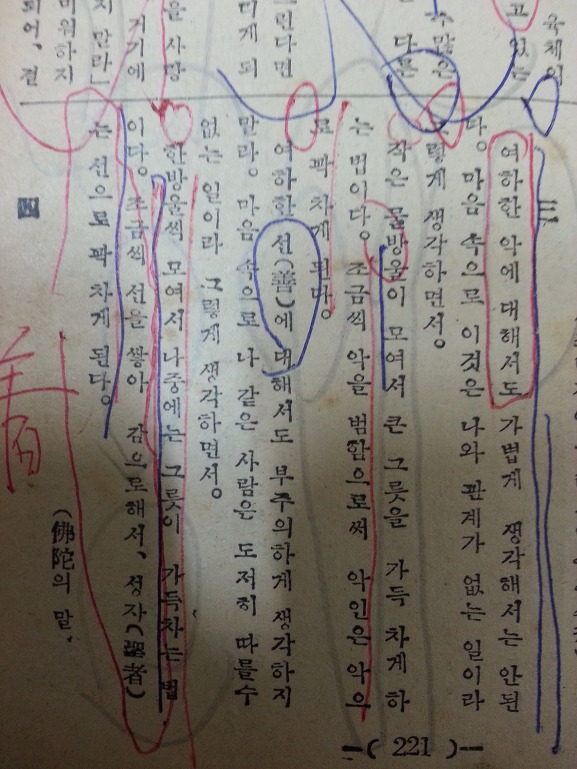 육체이
고 있는
수많은
다른
그린다면
미게 되
을 사망
거기에
지 말라」
미워하지
되어, 결
三
여하한 악에 대해서도 가볍게 생각해서는 안된
다. 마음 속으로 이것은 나와 관계가 없는 일이라
그렇게 생각하면서.
작은 물방울이 모여서 큰 그릇을 가득 차게 하
는 법이다. 조금씩 악을 범함으로써 악인은 악으
로 꽉 차게 된다.
여하한 선(善)에 대해서도 부주의하게 생각하지
말라. 마음 속으로 나 같은 사람은 도저히 따를수
없는 일이라 그렇게 생각하면서.
한방울씩 모여서 나중에는 그릇이 가득차는 법
이다. 조금씩 선을 쌓아 감으로해서, 성자(聖者)
는 선으로 꽉 차게 된다.
(佛陀의 말.
四
—( 221 )—